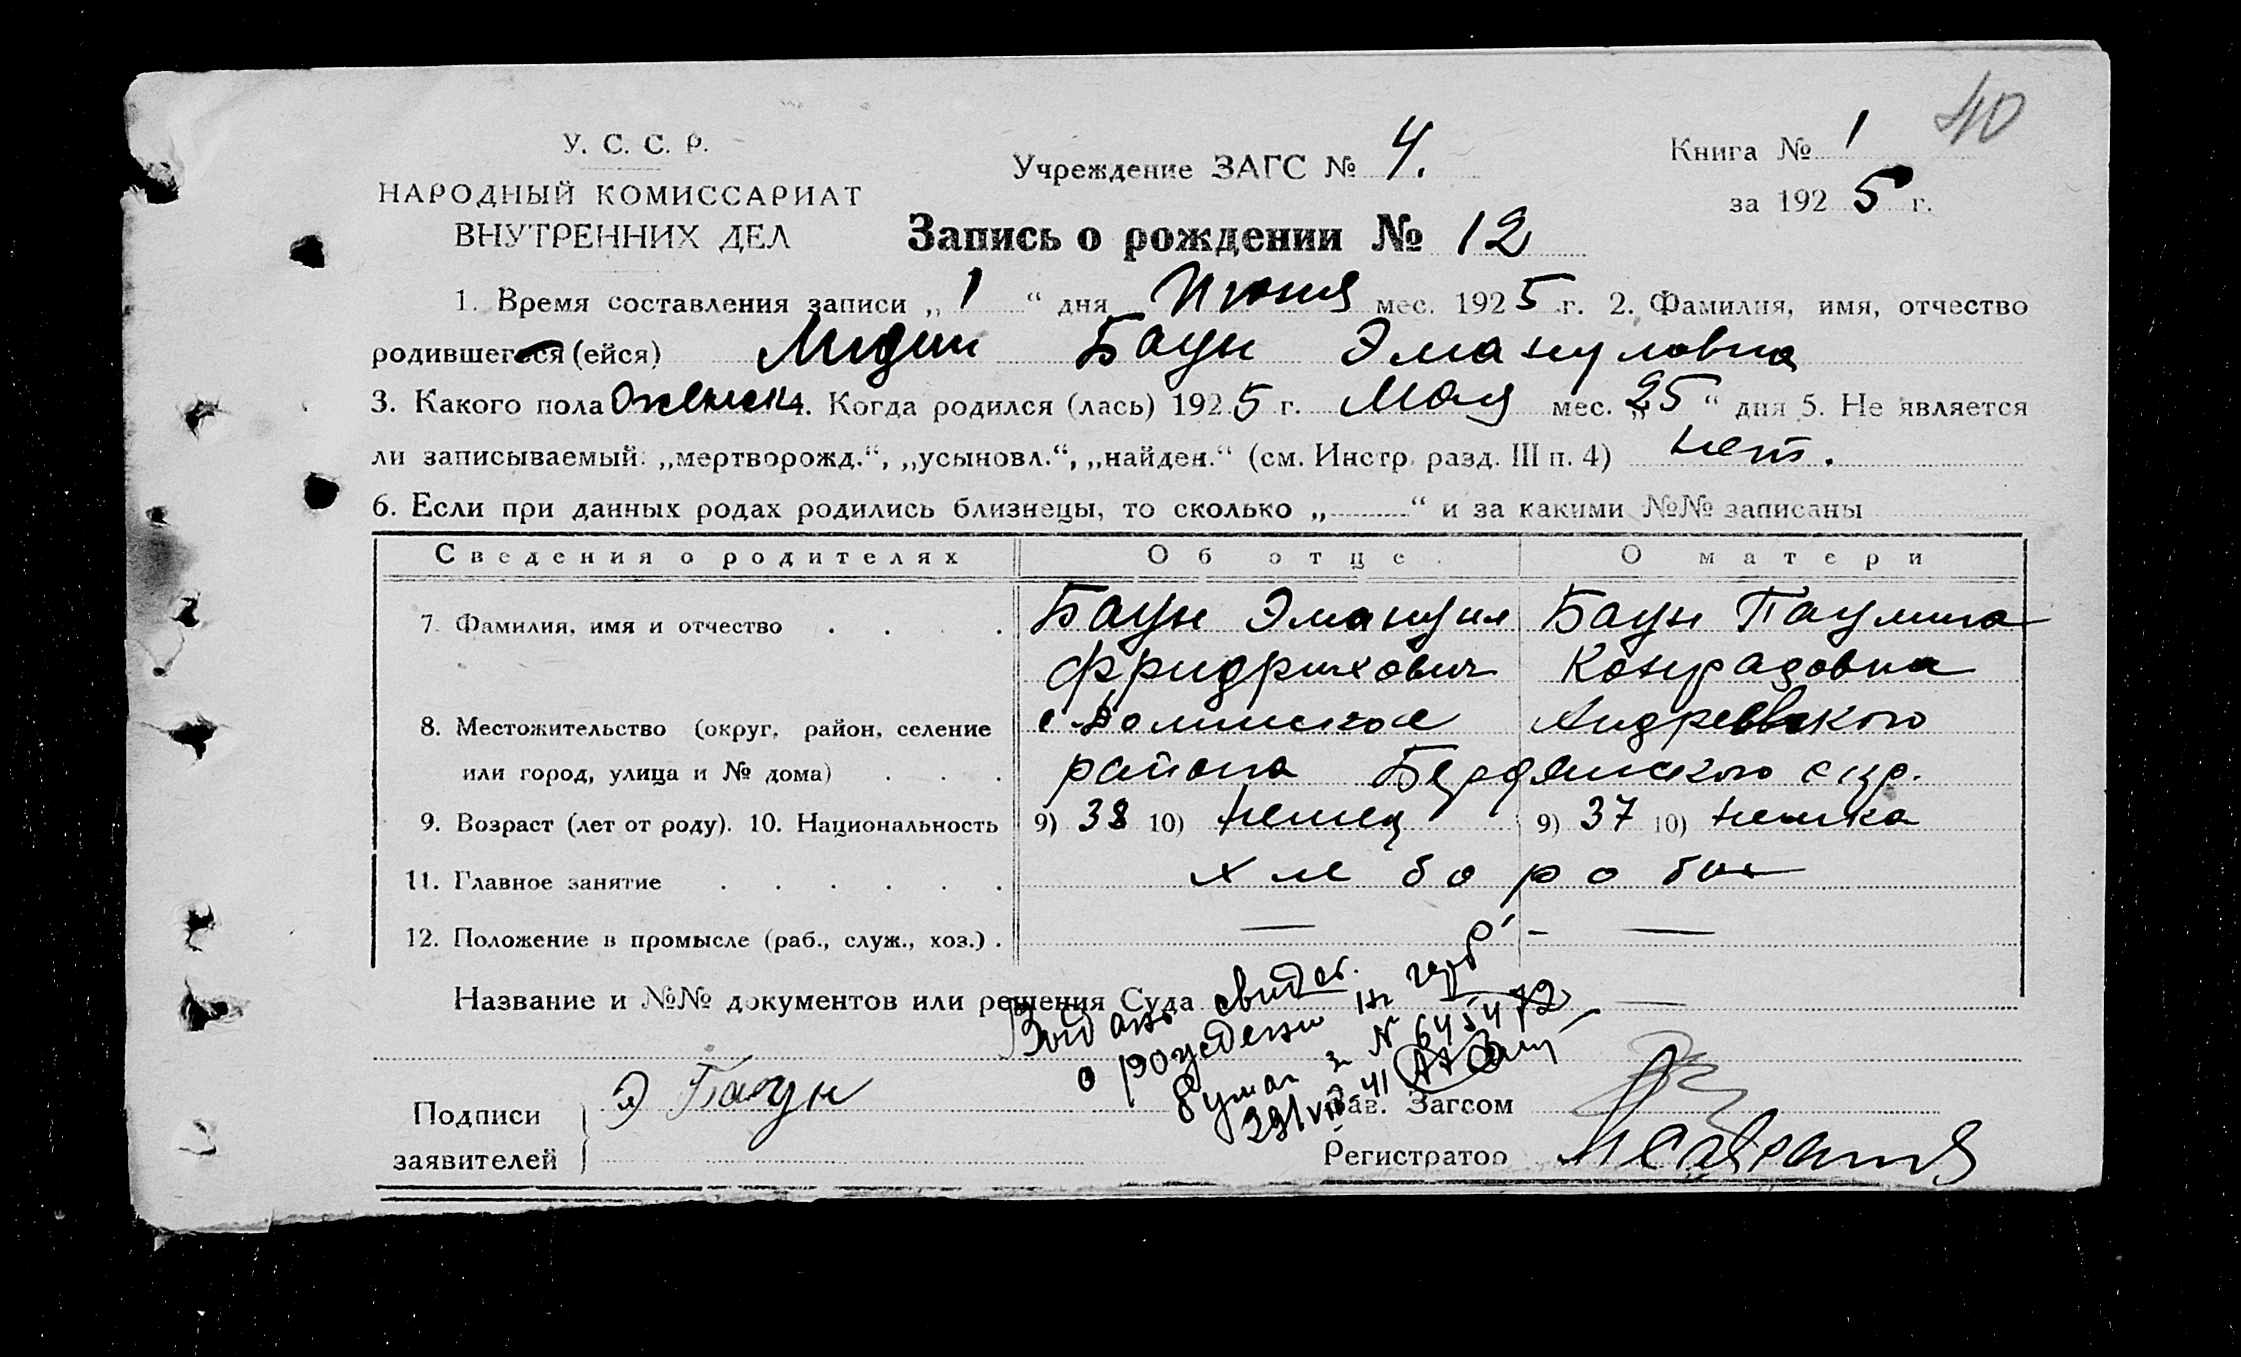 40
У. С. С. Р.
НАРОДНЫЙ КОМИССАРИАТ
ВНУТРЕННИХ ДЕЛ
Учреждение ЗАГС № 4.
Книга № 1
за 1925 г.
Запись о рождении № 12
1. Время составления записи „1“ дня Июня мес. 1925 г. 2. Фамилия, имя, отчество
родившегося (ейся) Лидии Баун Эмануловна
3. Какого пола женск. Когда родился (лась) 1925 г. Мая мес. „25“ дня 5. Не является
ли записываемый: „мертворожд.“, „усыновл.“, „найден.“ (см. Инстр. разд. III п. 4) нет.
6. Если при данных родах родились близнецы, то сколько „ “ и за какими №№ записаны
Сведения о родителях Об отце О матери
7. Фамилия, имя и отчество Баун Эмануил Баун Паулина
Фридрихович Конрадовна
8. Местожительство (округ, район, селение Андреевского
или город, улица и № дома) района Бердянского окр.
9. Возраст (лет от роду). 10. Национальность 9) 38 10) немец 9) 37 10) немка
11. Главное занятие хлебороб
12. Положение в промысле (раб., служ., хоз.) . — — —
Название и №№ документов или решения Суда —
Выдано свидет.
о рождении на герб
бумаг за N 645472
29/VII-41
Подписи
заявителей
Э Баун
Зав. Загсом
Регистратор